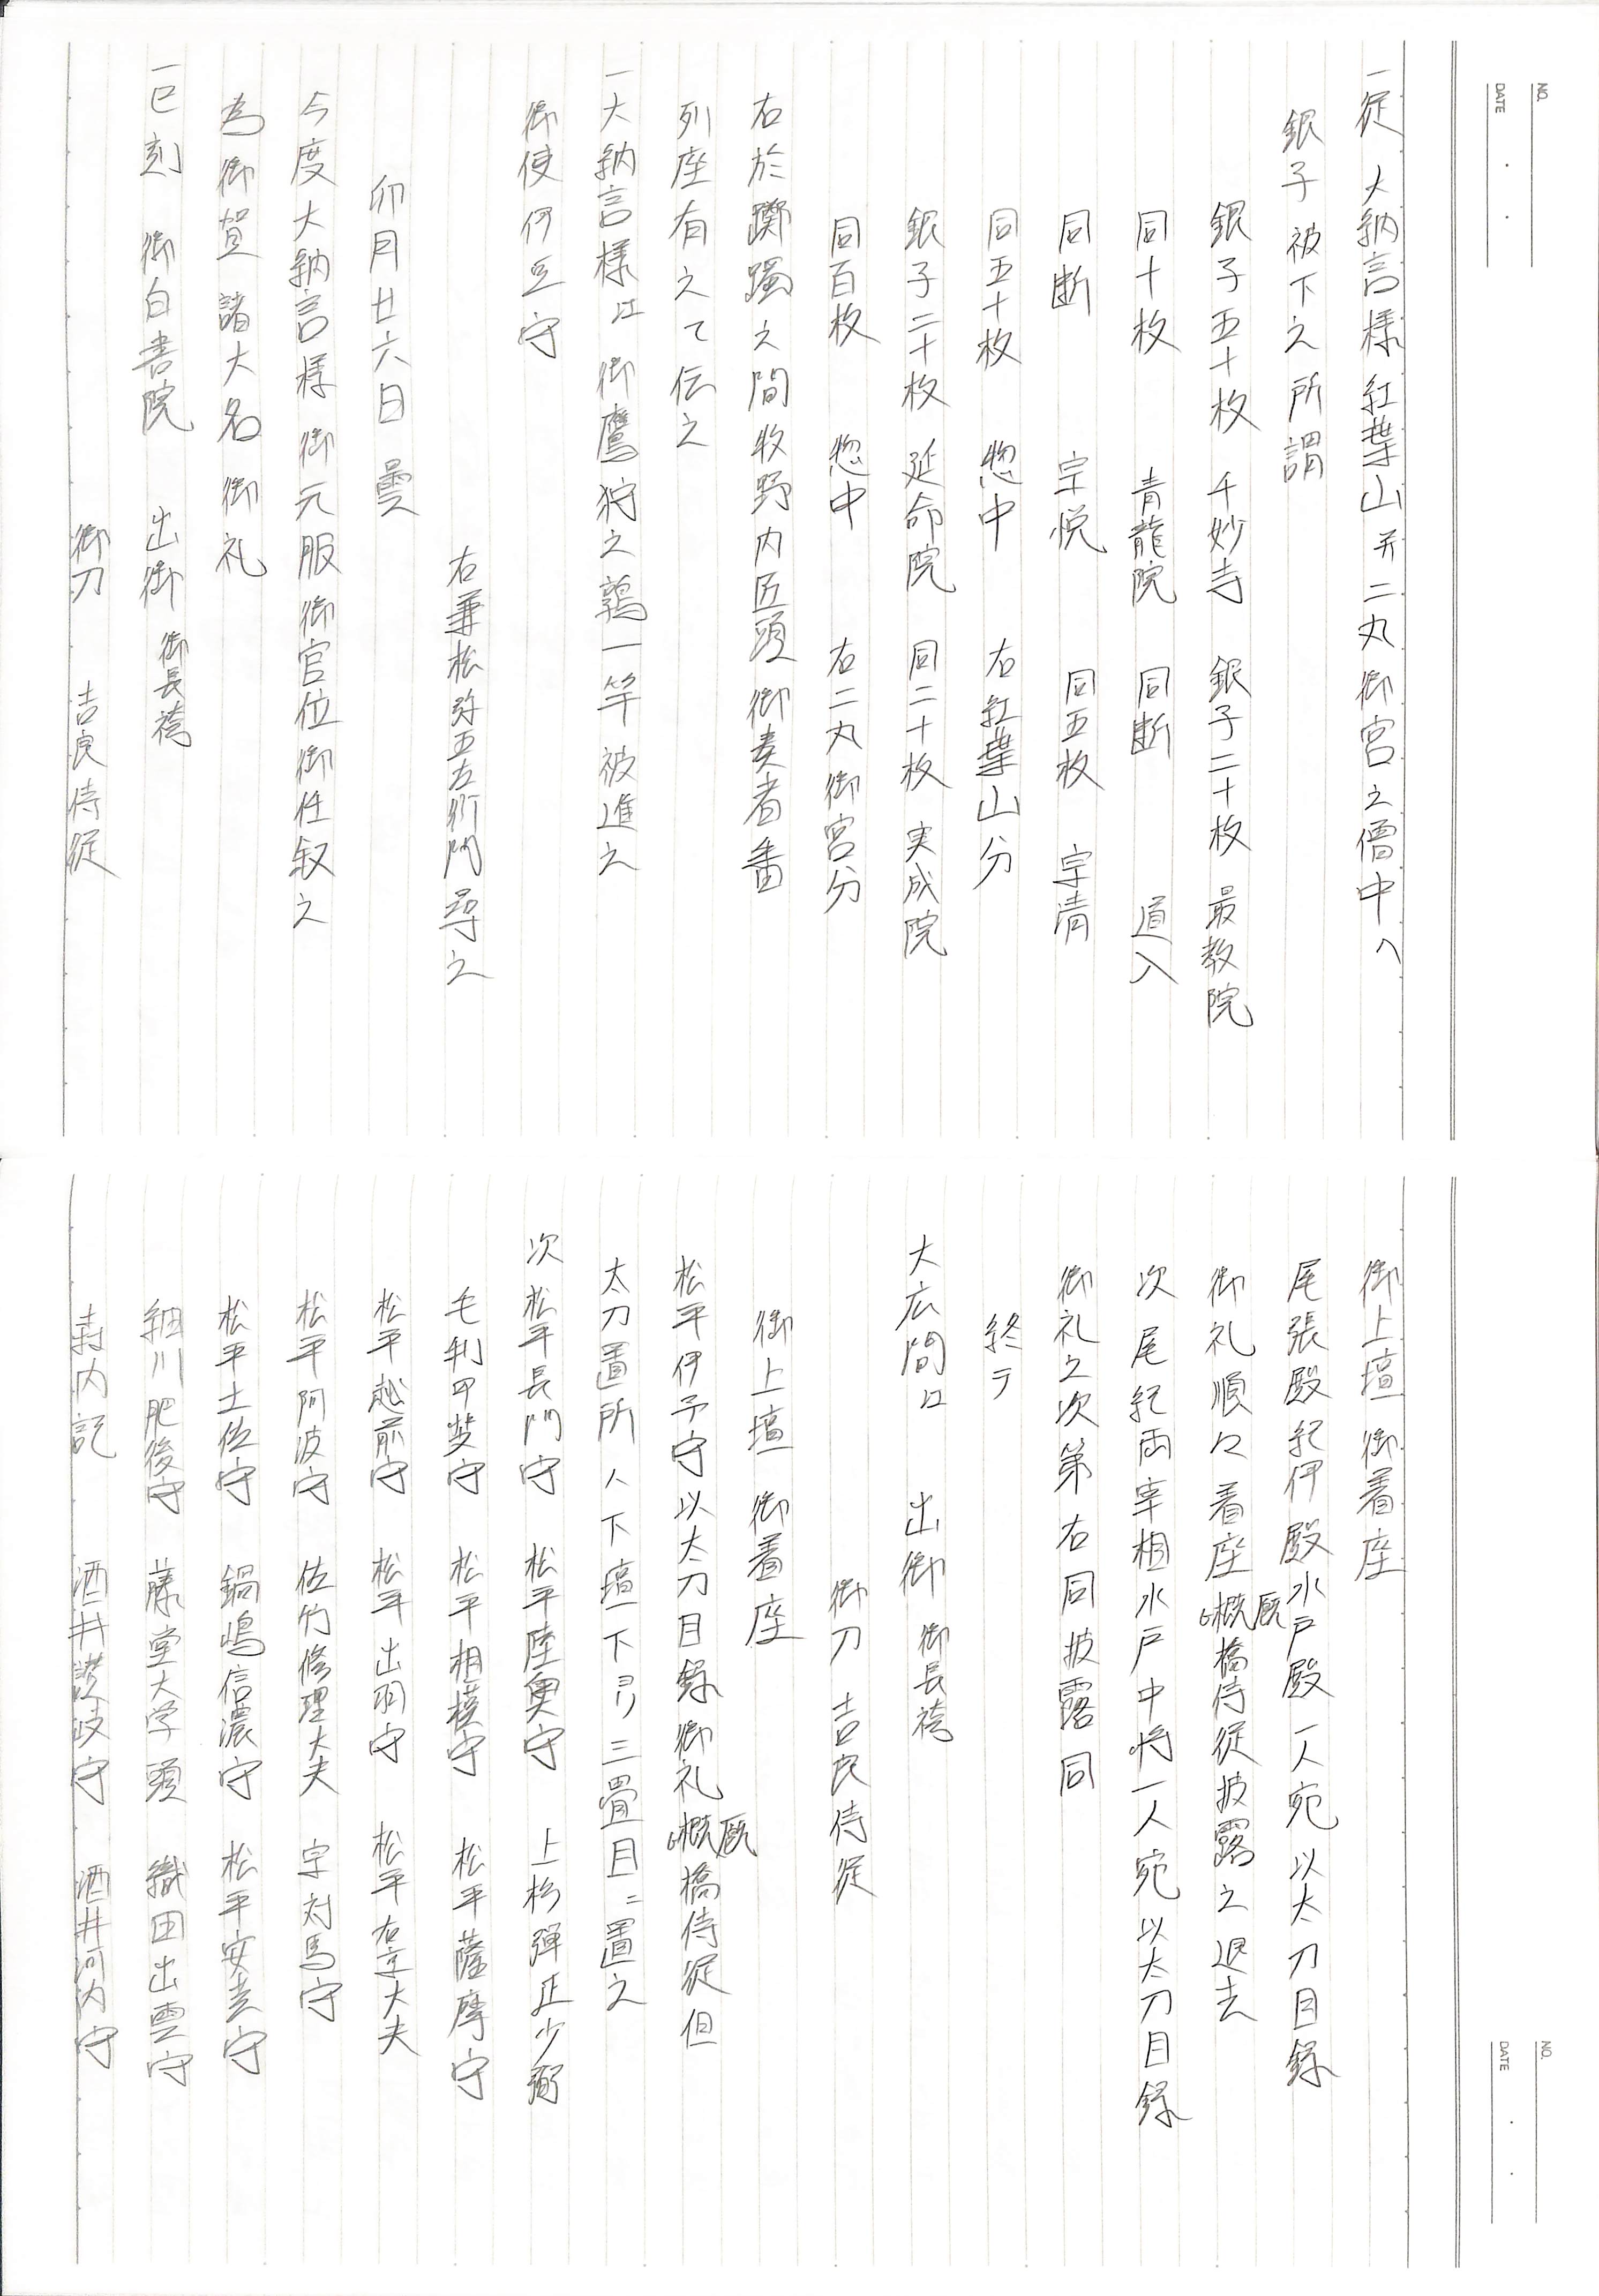 NO.
DATE
一従 大納言様 紅葉山 并 二丸 御宮之僧中へ
銀子 被下之 所謂
銀子五十枚 千妙寺 銀子二十枚 最教院
同十枚 青龍院 同断 道入
同断 宗悦 同五枚 宗清
同五十枚 惣中 右紅葉山分
銀子二十枚 延命院 同二十枚 実成院
同百枚 惣中 右二丸御宮分
右於躑躅之間牧野内匠頭 御奏者番
列座有之て伝之
一大納言様江 御鷹狩之鶉一竿被進之
御使 伊豆守
右兼松弥五左衛門尋之
卯月廿六日 曇
今度大納言様 御元服 御官位御任叙之
為御賀 諸大名 御礼
一巳刻 御白書院 出御 御長袴
御刀 吉良侍従
御上壇 御着座
尾張殿紀伊殿水戸殿 一人宛 以太刀目録
御礼順々着座 概厩橋侍従披露之 退去
次 尾紀両宰相水戸中将一人宛 以太刀目録
御礼之次第 右同 披露同
終テ
大広間江 出御 御長袴
御刀 吉良侍従
御上壇 御着座
松平伊予守以太刀目録御礼 概厩橋侍従 但
太刀置所ハ下壇下ヨリ三畳目ニ置之
次 松平長門守 松平陸奥守 上杉弾正少弼
毛利甲斐守 松平相模守 松平薩摩守
松平越前守 松平出羽守 松平右京大夫
松平阿波守 佐竹修理大夫 宗対馬守
松平土佐守 鍋嶋信濃守 松平安芸守
細川肥後守 藤堂大学頭 織田出雲守
寿内記 酒井讃岐守 酒井河内守
NO.
DATE